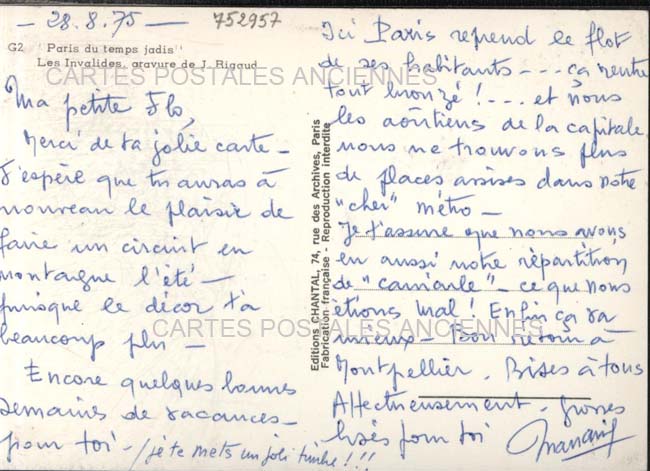 - 28.8.75 -
752957
G2 "Paris du temps jadis"
Les Invalides, gravure de J. Rigaud
CARTES POSTALES ANCIENNES
Ma petite Flo,
Merci de ta jolie carte -
J'espère que tu auras à
nouveau le plaisir de
faire un circuit en
montagne l'été -
puisque le décor t'a
beaucoup plu -
Encore quelques bonnes
semaines de vacances -
pour toi - / je te mets un joli timbre !!!
Editions CHANTAL, 74, rue des Archives, Paris
Fabrication française - Reproduction interdite
Ici Paris reprend le flot
de ses habitants - - - ça rentre
tout bronzé ! - - . et nous
les aoûtiens de la capitale
nous ne trouvons plus
de places assises dans notre
"cher" métro -
Je t'assure que nous avons
eu aussi notre répartition
de "canicule" - ce que nous
étions mal ! Enfin ça va
mieux - Bon retour à
Montpellier . Bises à tous
Affectueusement - grosses
bises pour toi
CARTES POSTALES ANCIENNES